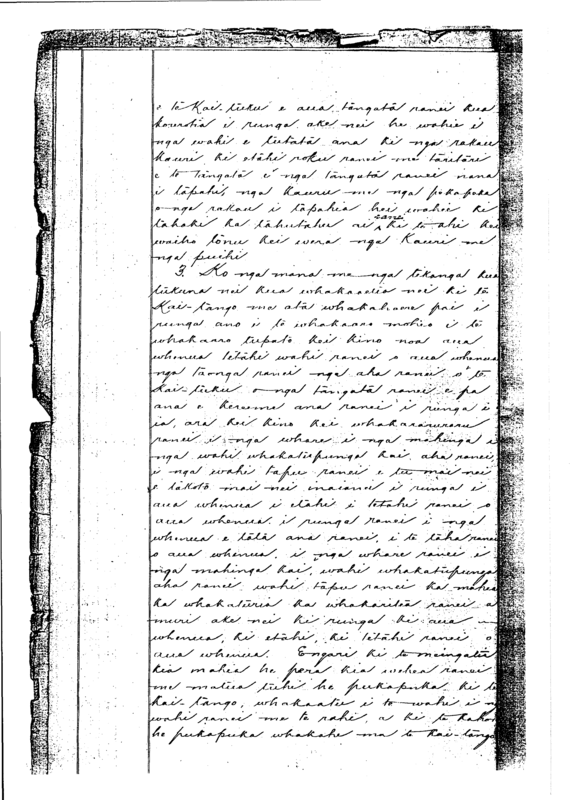 o te Kai-tuku e aua tangata ranei kua
kowotia i runga ake nei he wahie i
nga wahi e tutata ana ki nga rakau
Kauri ki etahi roku ranei me taritari
e te tangata e nga tangata ranei nana
i tapahi, nga Kauru me nga pokapoka
o nga rakau i tapahia hei wahie ki
tahaki ka tahutahu ai ranei ki te ahi kei
waiho tonu kei wera nga Kauri me
nga puihi
3. Ko nga mana me nga tikanga kua
tukuna nei kua whakaaetia nei ki te
Kai-tango me ata whakahaere pai i
runga ano i te whakaaro mohio i te
whakaaro tupato kei kino noa aua
whenua tetahi wahi ranei o aua whenua
nga taonga ranei nga aha ranei o te
Kai-tuku o nga tangata ranei e pa
ana e kereeme ana ranei i runga i a
ia, ara kei kino kei whakararuraru
ranei i nga whare i nga mahinga i
nga wahi whakatupunga kai, aha ranei,
i nga wahi tapu ranei e tu mai nei
e takoto mai nei inaianei i runga i
aua whenua i etahi i tetahi ranei o
aua whenua, i runga ranei i nga
whenua e tata ana ranei, i te taha ranei
o aua whenua, i nga whare ranei i
nga mahinga kai, wahi whakatupunga
aha ranei wahi tapu ranei ka mahia
ka whakaturia ka whakaritea ranei a
muri ake nei ki runga ki aua
whenua, ki etahi, ki tetahi ranei o
aua whenua. Engari ki te meingatia
kia mahia he pera kia wehea ranei
me matua tuhi he pukapuka ki te
kai-tango, whakaatu i te wahi i nga
wahi ranei me te rahi, a ki te kahore
he pukapuka whakahe ma te kai-tango